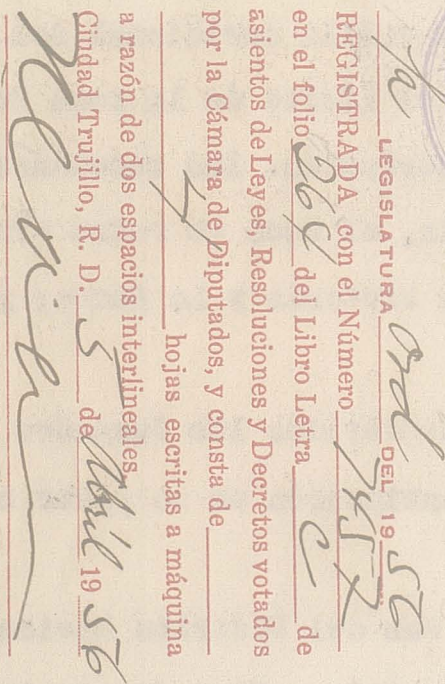 1a LEGISLATURA Ord DEL 1956
REGISTRADA con el Número 7457
en el folio 264 del Libro Letra C de
asientos de Leyes, Resoluciones y Decretos votados
por la Cámara de Diputados, y consta de
hojas escritas a máquina
a razón de dos espacios interlineales
Ciudad Trujillo, R. D. 5 de Abril 1956